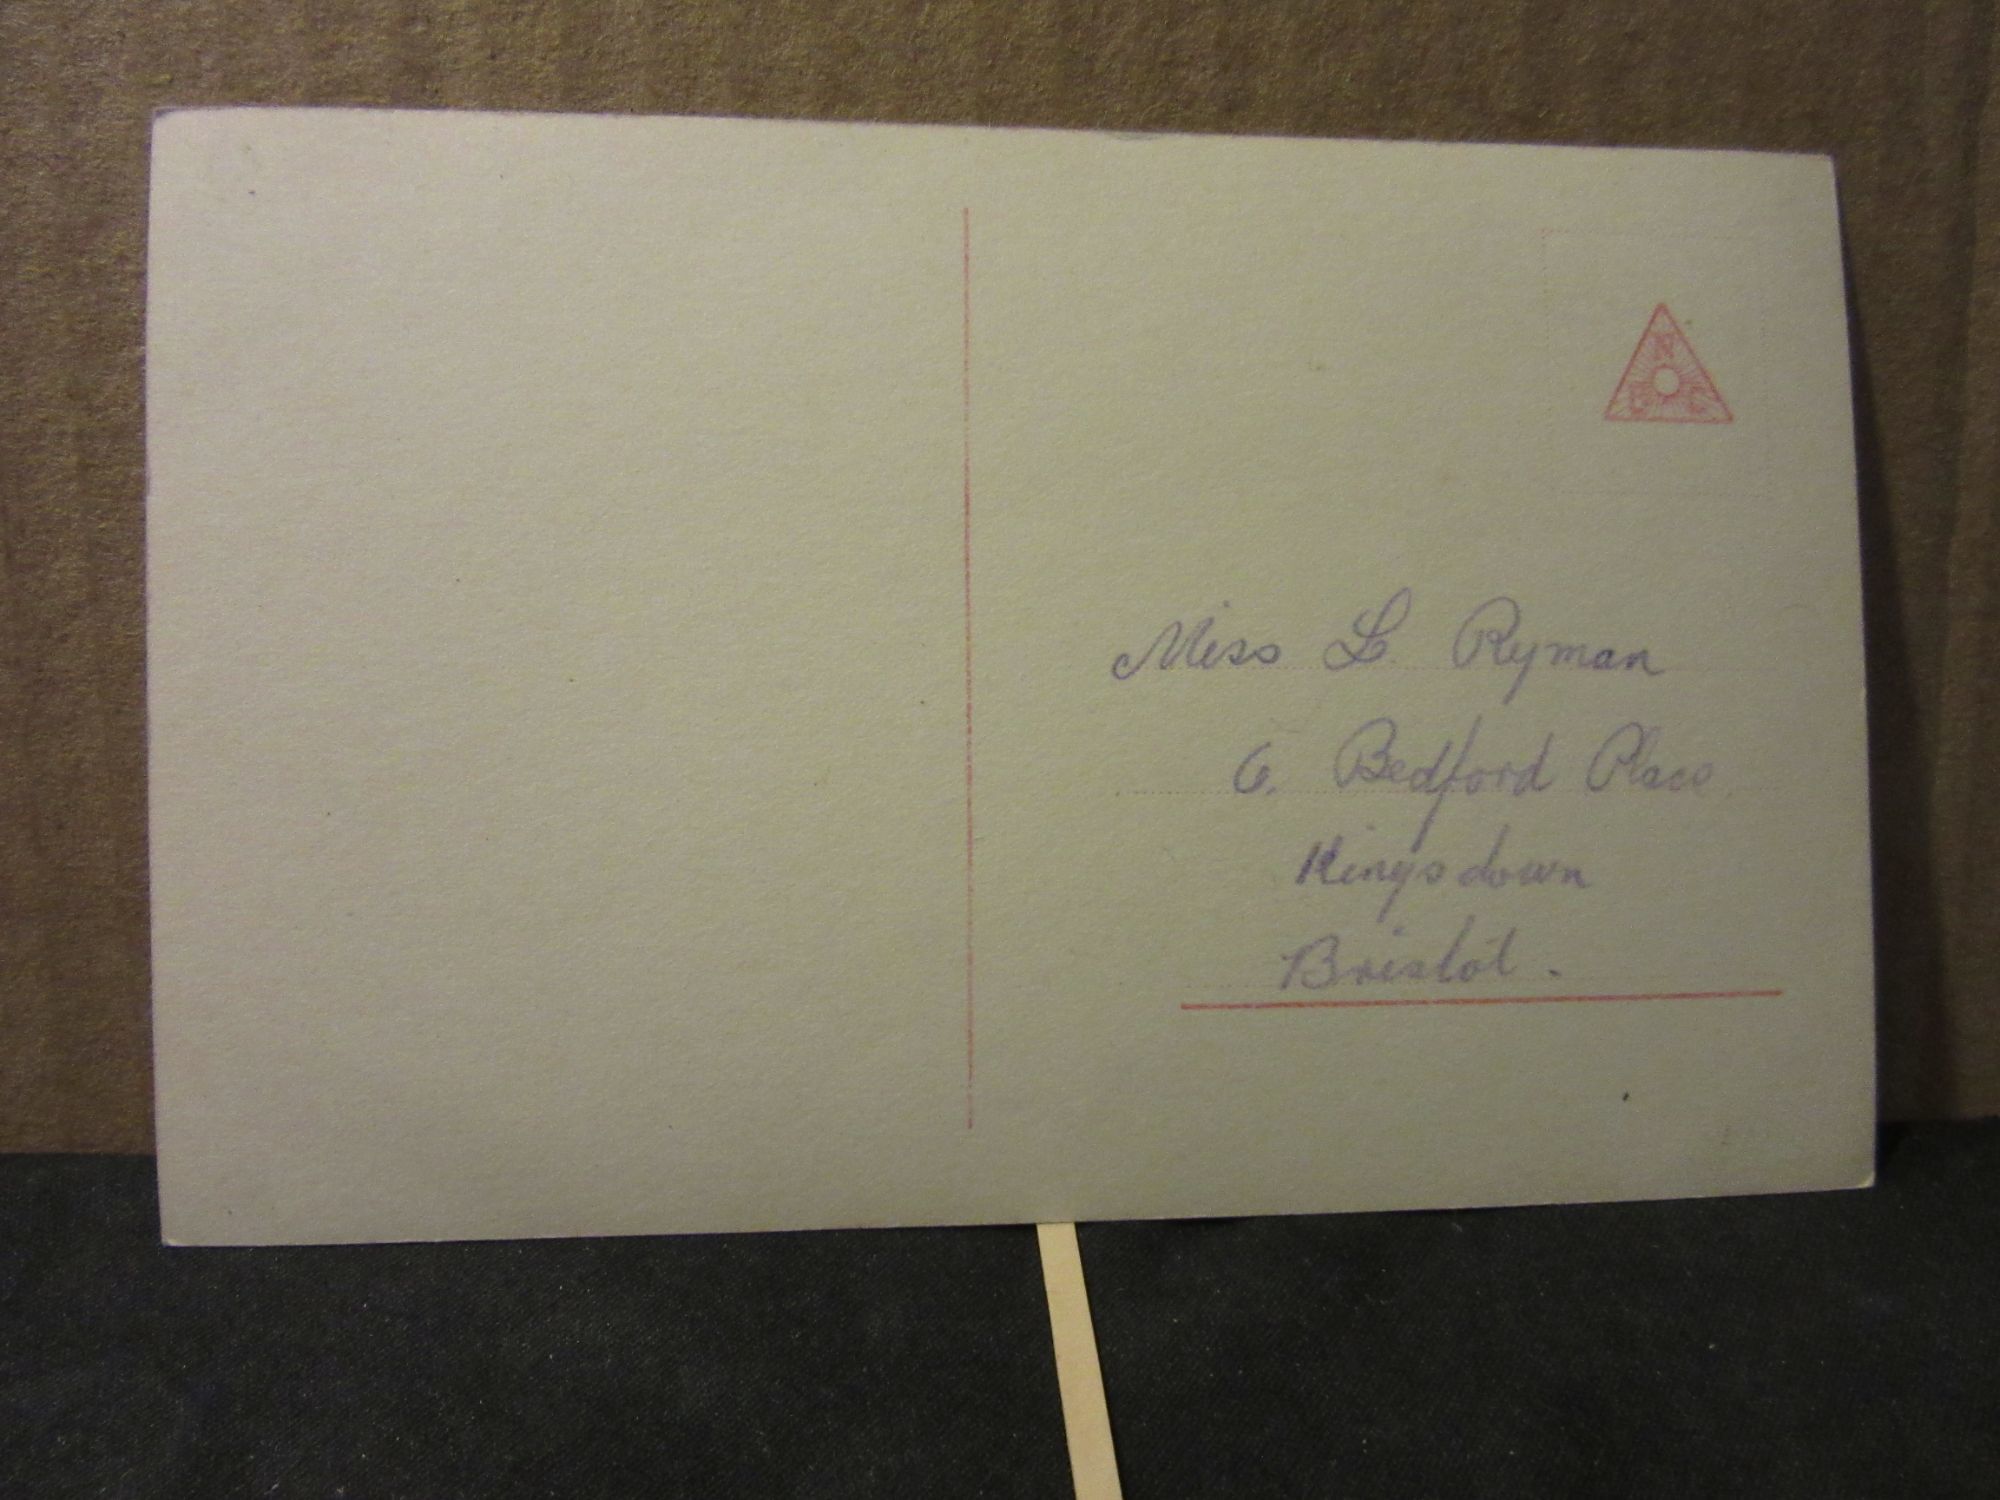 N
E C
Miss L. Ryman
6. Bedford Place
Kingsdown
Bristol.